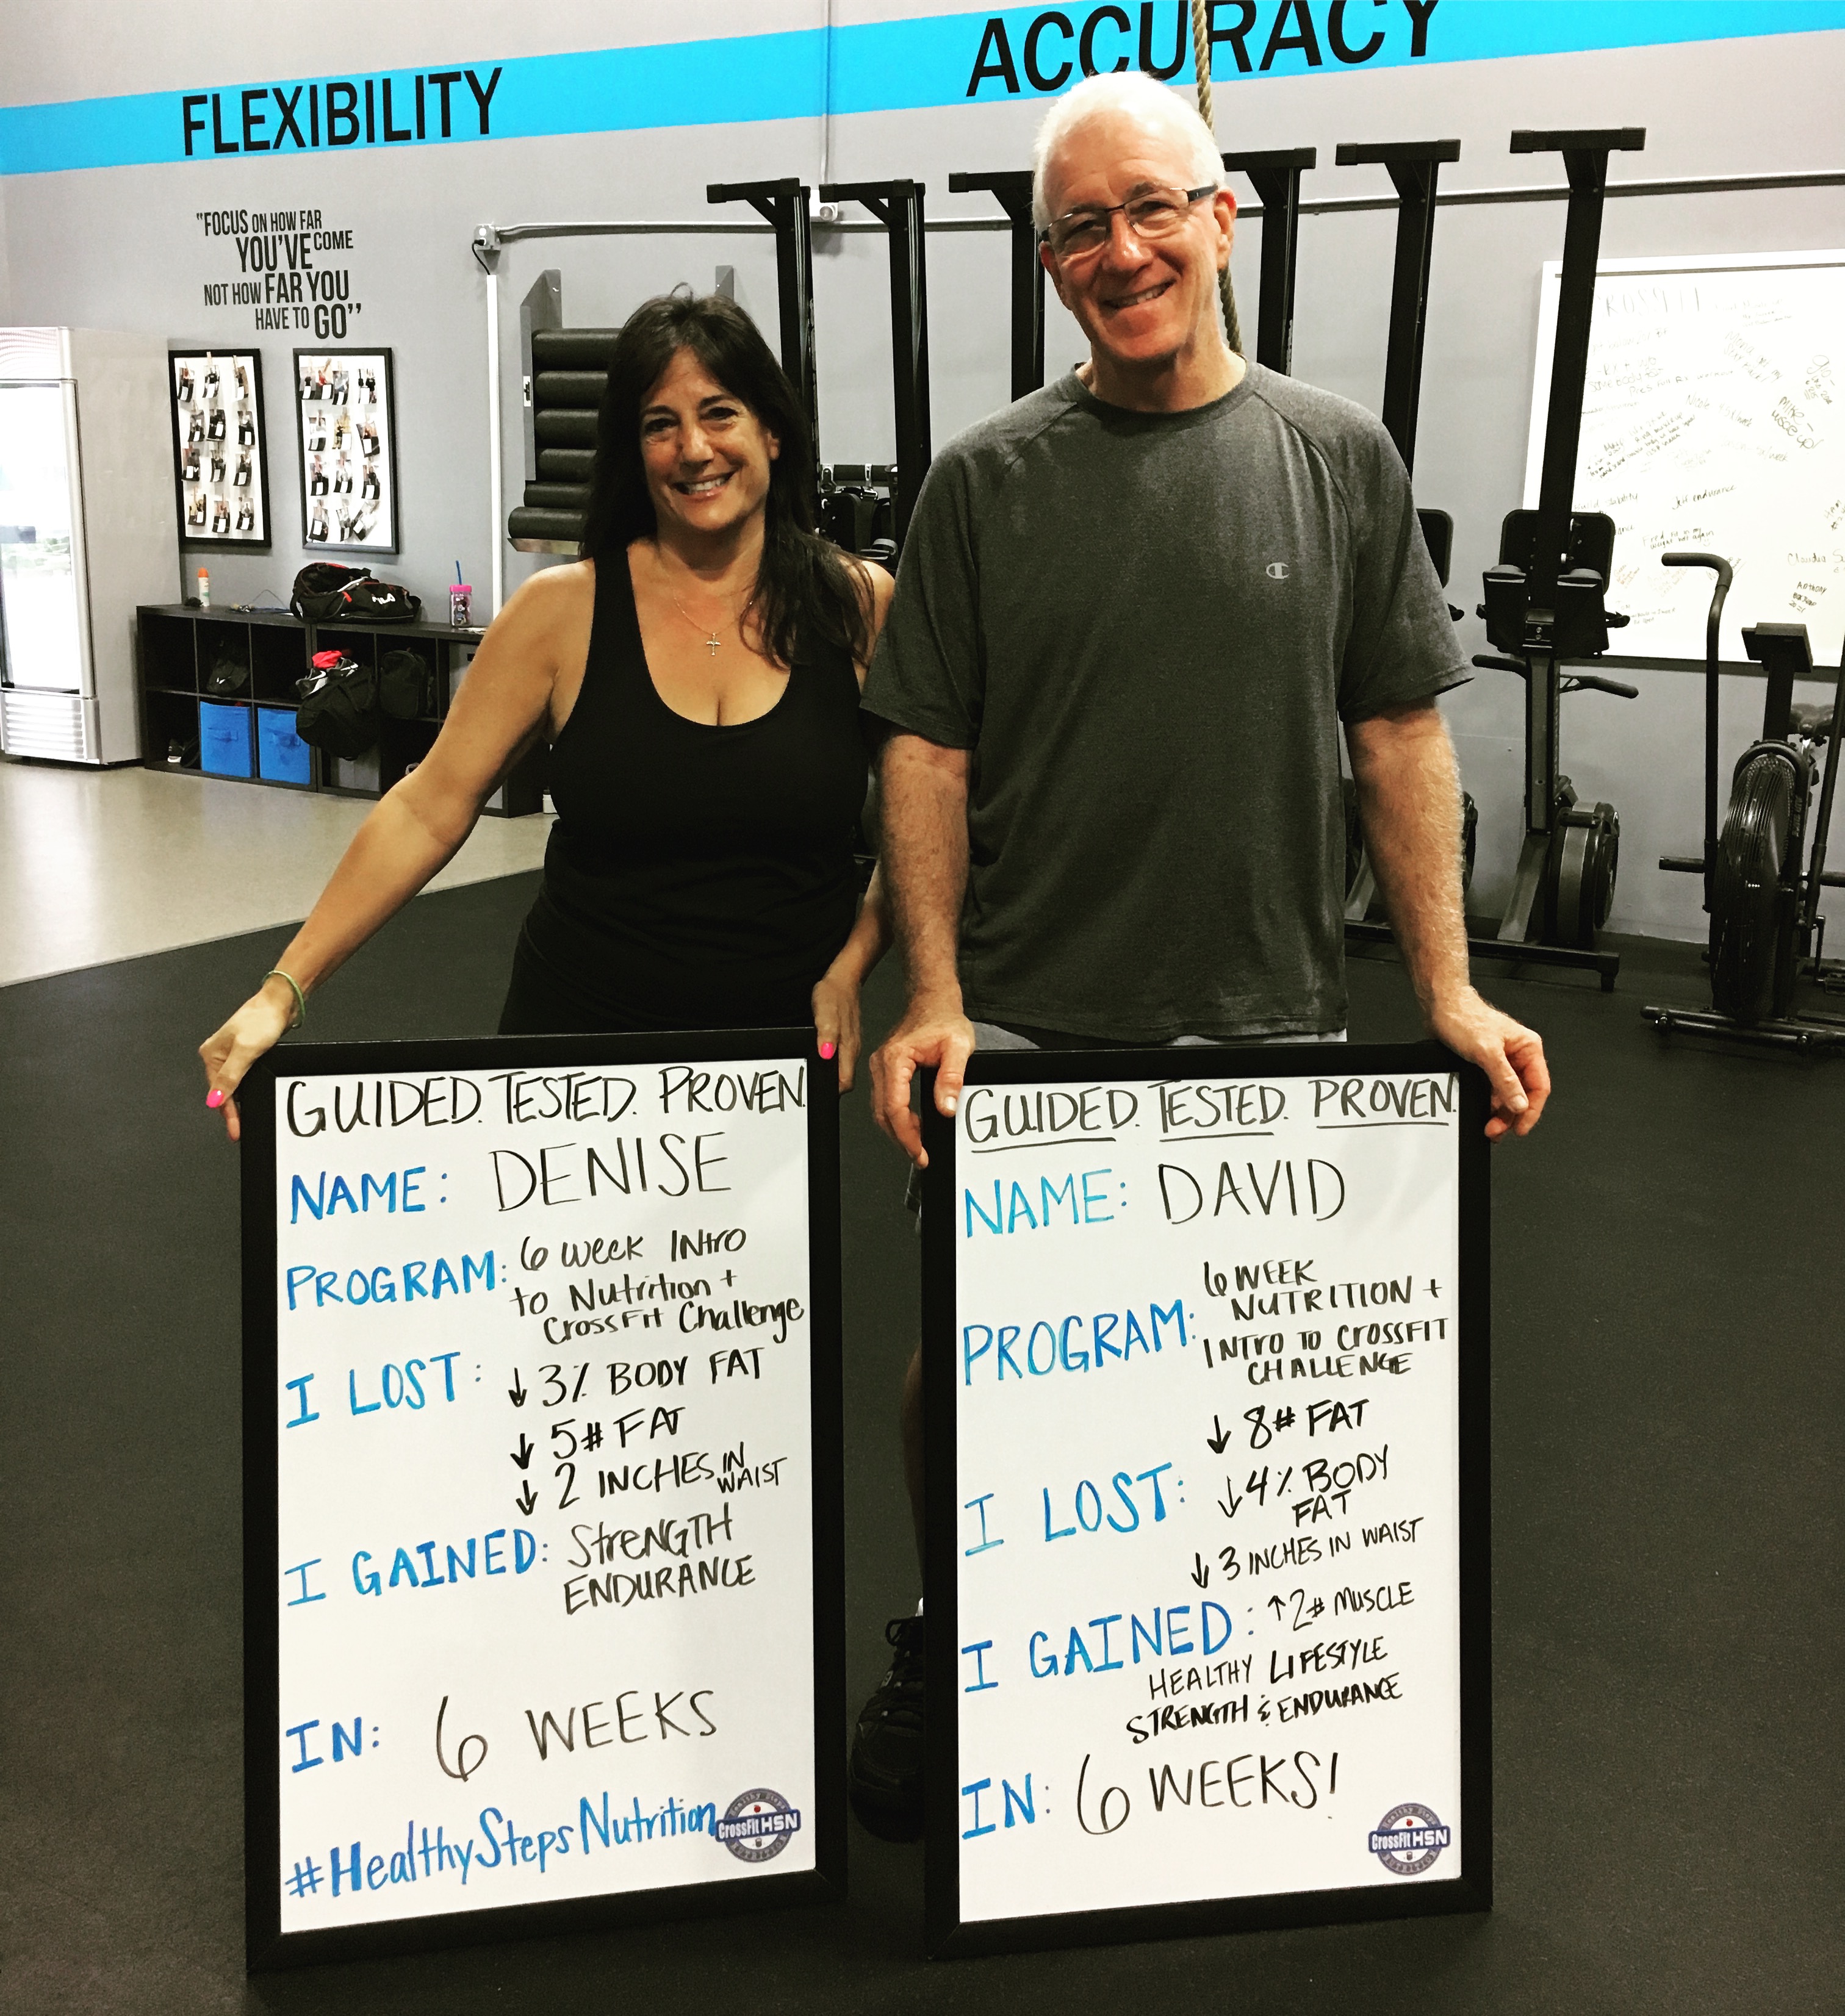 FLEXIBILITY
ACCURACY
"FOCUS ON HOW FAR
YOU'VE COME
NOT HOW FAR YOU
HAVE TO GO"
FILA
GUIDED. TESTED. PROVEN.
NAME: DENISE
PROGRAM: 6 week INtro
to Nutrition +
CrossFit Challenge
I LOST: ↓ 3% BODY FAT
↓ 5# FAT
↓ 2 INCHES IN
WAIST
I GAINED: StreNGTH
ENDURANCE
IN: 6 WEEKS
#HealthyStepsNutrition
CrossFit HSN
GUIDED. TESTED. PROVEN.
NAME: DAVID
6 WEEK
NUTRITION +
PROGRAM: INtro to CrossFIT
CHALLENGE
↓ 8# FAT
I LOST: ↓ 4% BODY
FAT
↓ 3 INCHES IN WAIST
I GAINED: ↑ 2# MUSCLE
HEALTHY LIFESTYLE
STRENGTH & ENDURANCE
IN: 6 WEEKS!
CrossFit HSN